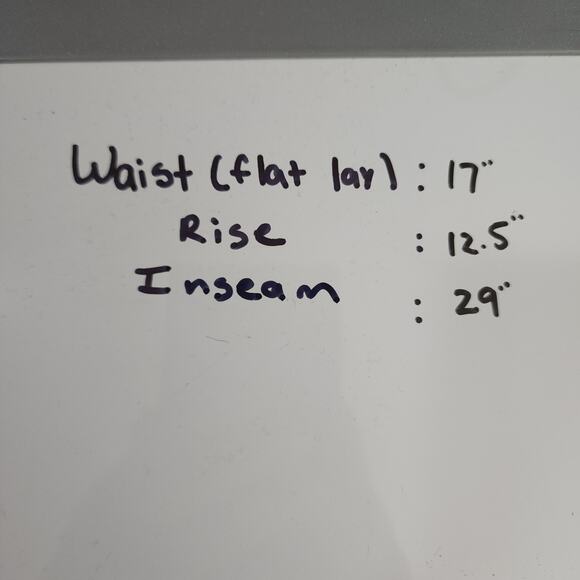 Waist (flat lay) : 17"
Rise : 12.5"
Inseam : 29"